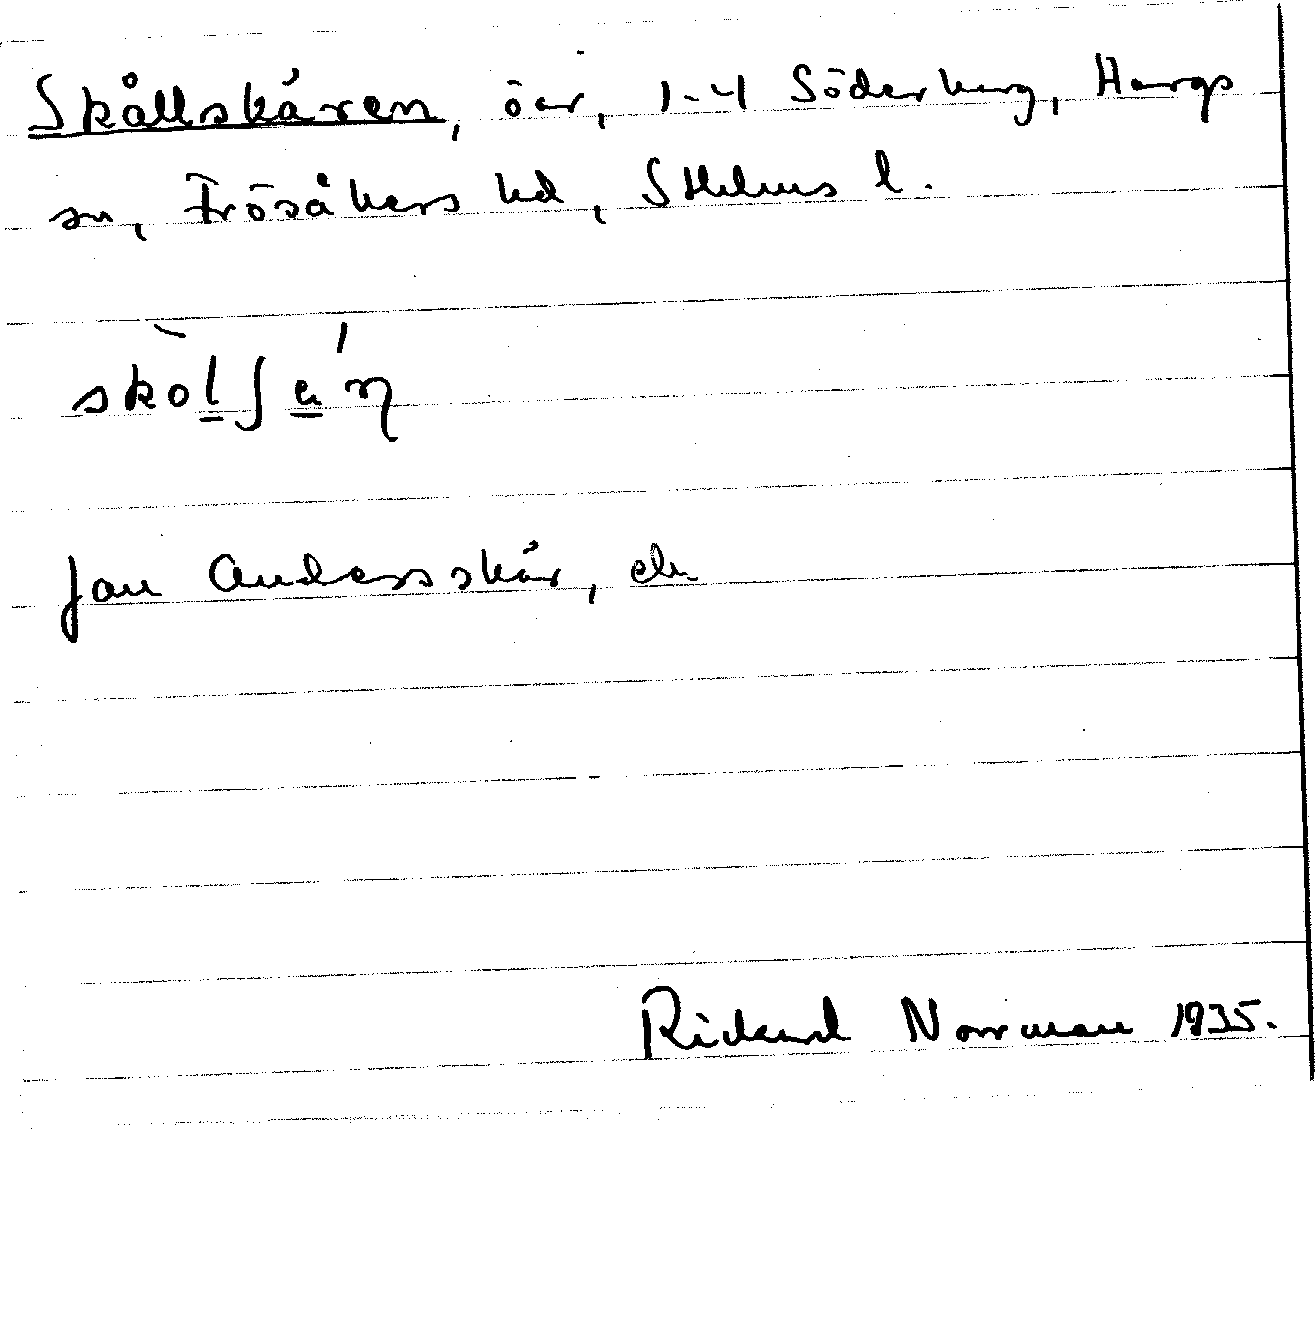 Skållskären, öar, 1-4 Söderberg, Hargs
sn, Frösåkers hd, Sthlms l.
skòlʃän
Jan Andersskär, ek.
Rickard Norrman 1935.